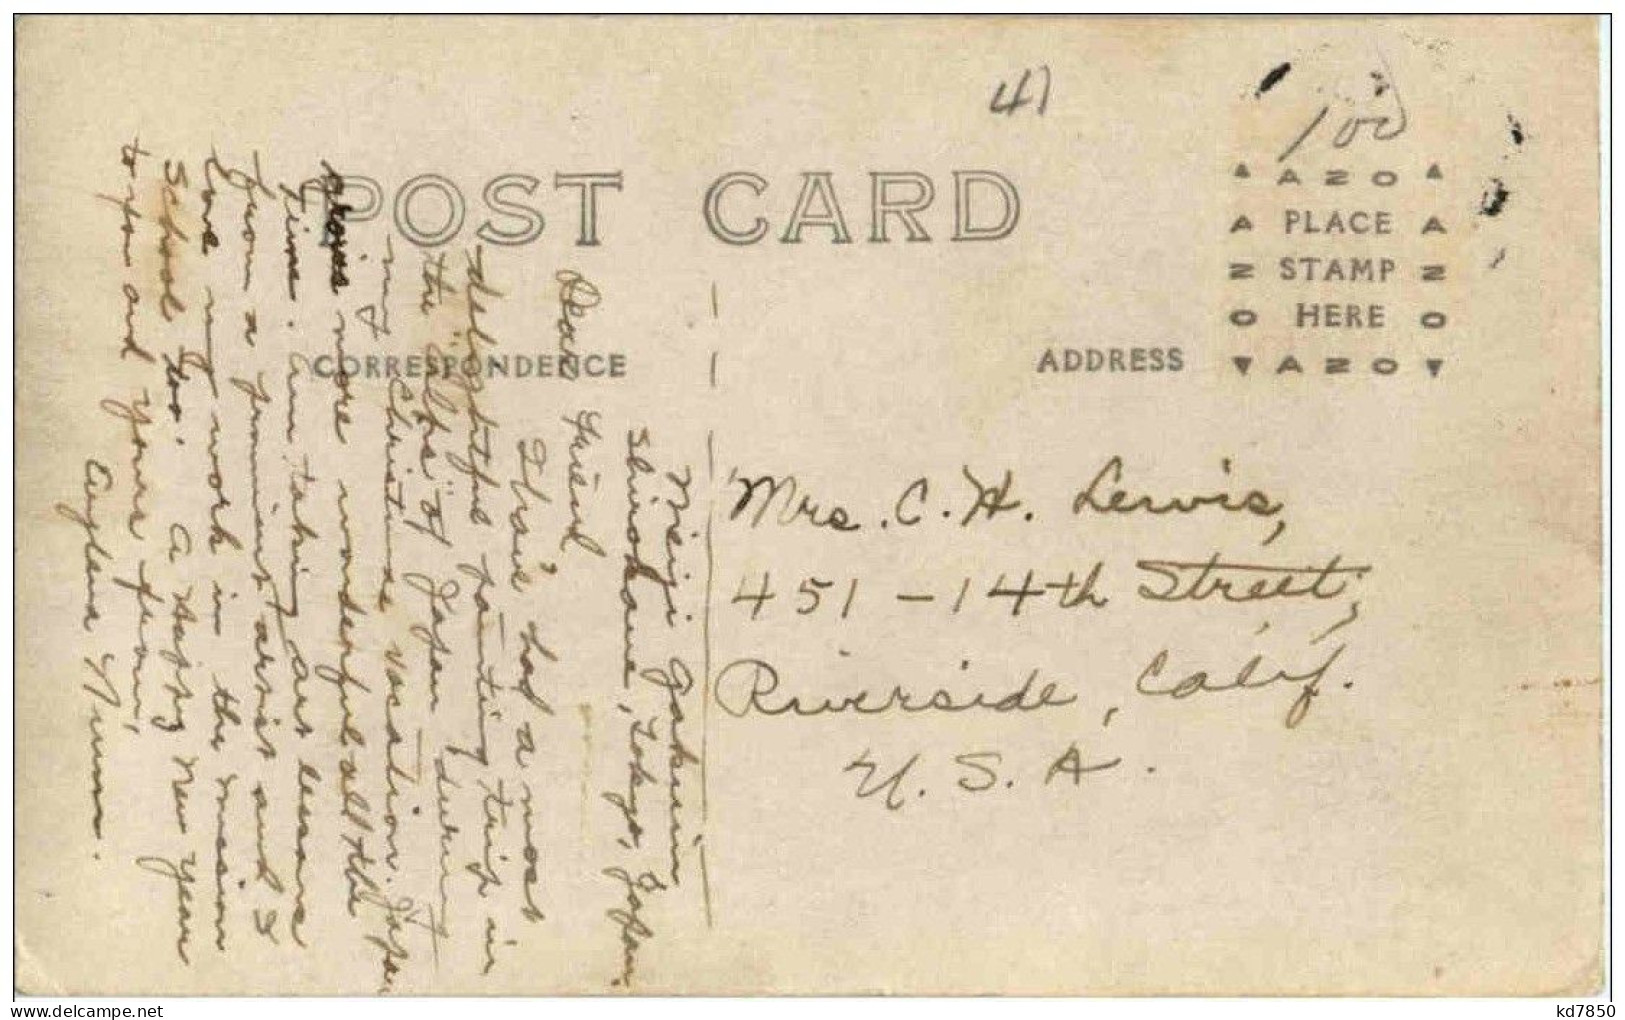 41
100
POST CARD
AZO
PLACE
STAMP
HERE
AZO
CORRESPONDENCE
ADDRESS
Meiji Gakuin
Shirokane, Tokyo, Japan.
Dear Friend
I have had a most
delightful painting trip in
the "Alps" of Japan during
my Christmas vacation. Japan
grows more wonderful all the
time. Am taking art lessons
from a prominent artist and I
love my work in the mission
school too. A Happy New Year
to you and yours from,
Mrs. C. H. Lewis,
451 - 14th Street,
Riverside, Calif.
U. S. A.
kd7850